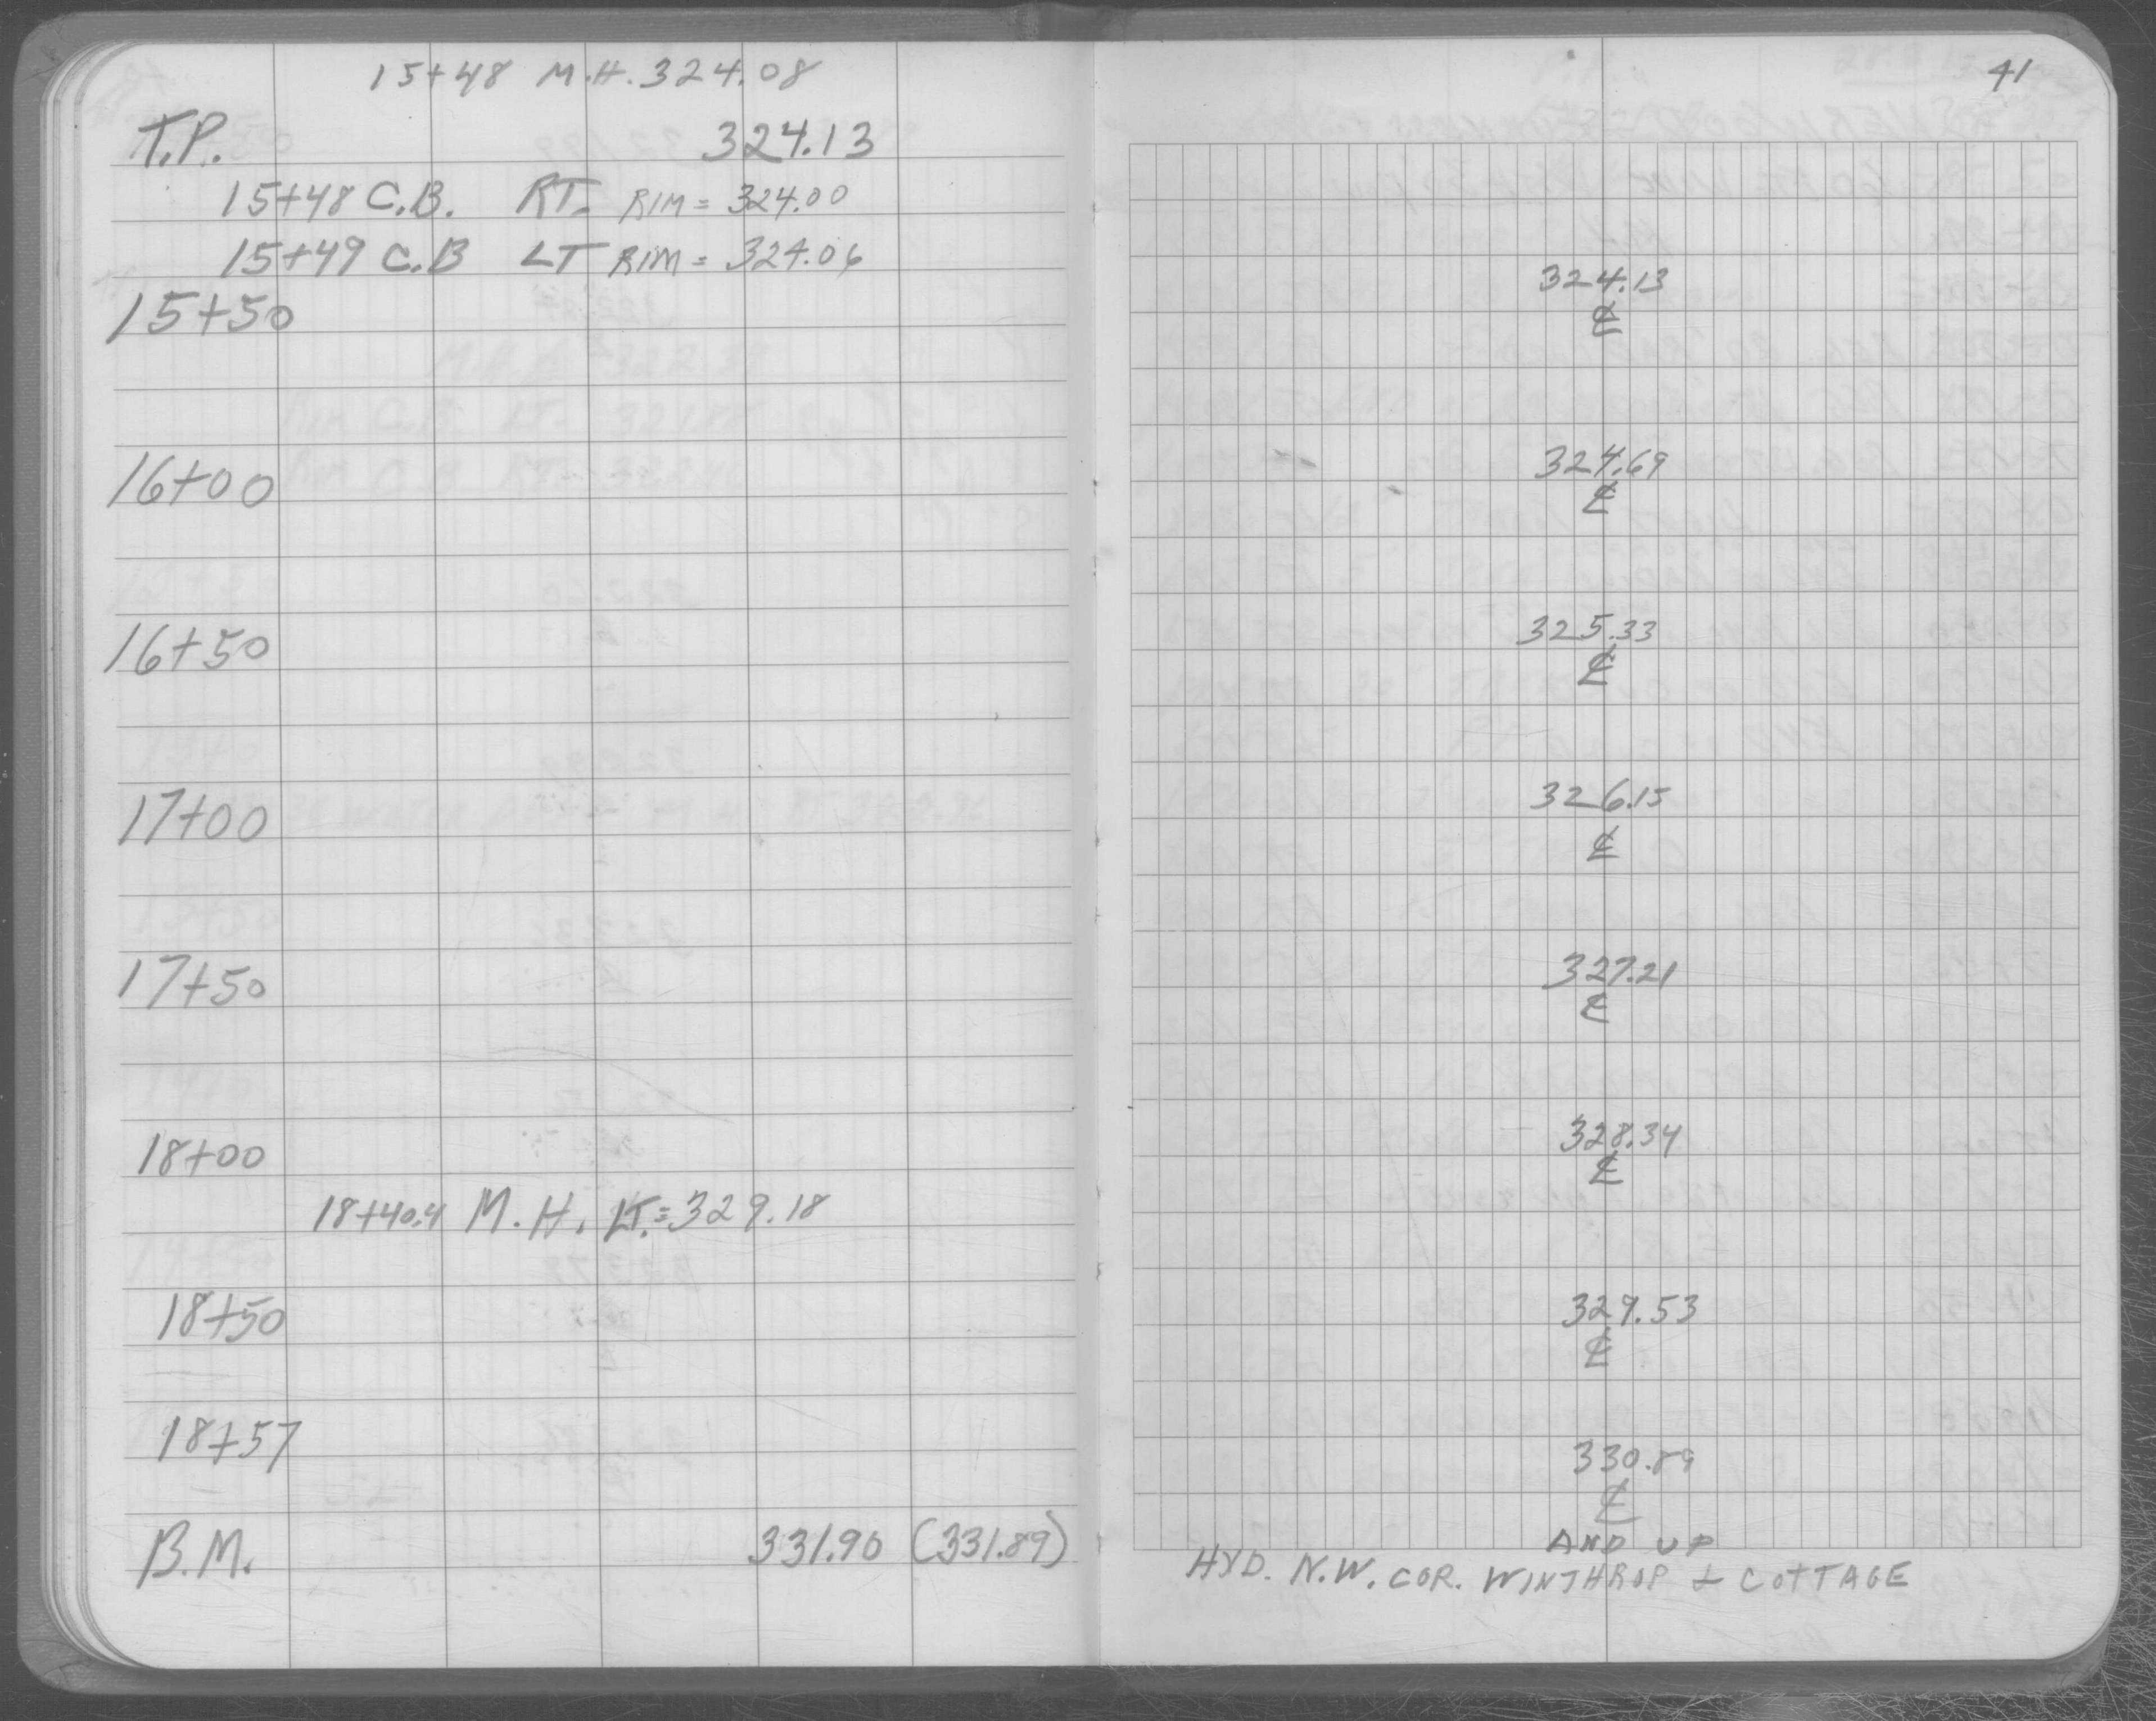 15+48 M.H. 324.08
T.P. 324.13
15+48 C.B. RT. RIM = 324.00
15+49 C.B LT RIM = 324.06
15+50
16+00
16+50
17+00
17+50
18+00
18+40.4 M.H. LT. = 329.18
18+50
18+57
B.M. 331.90 (331.89)
41
324.13
℄
324.69
℄
325.33
℄
326.15
℄
327.21
℄
328.34
℄
329.53
℄
330.89
℄
AND UP
HYD. N.W. COR. WINTHROP & COTTAGE